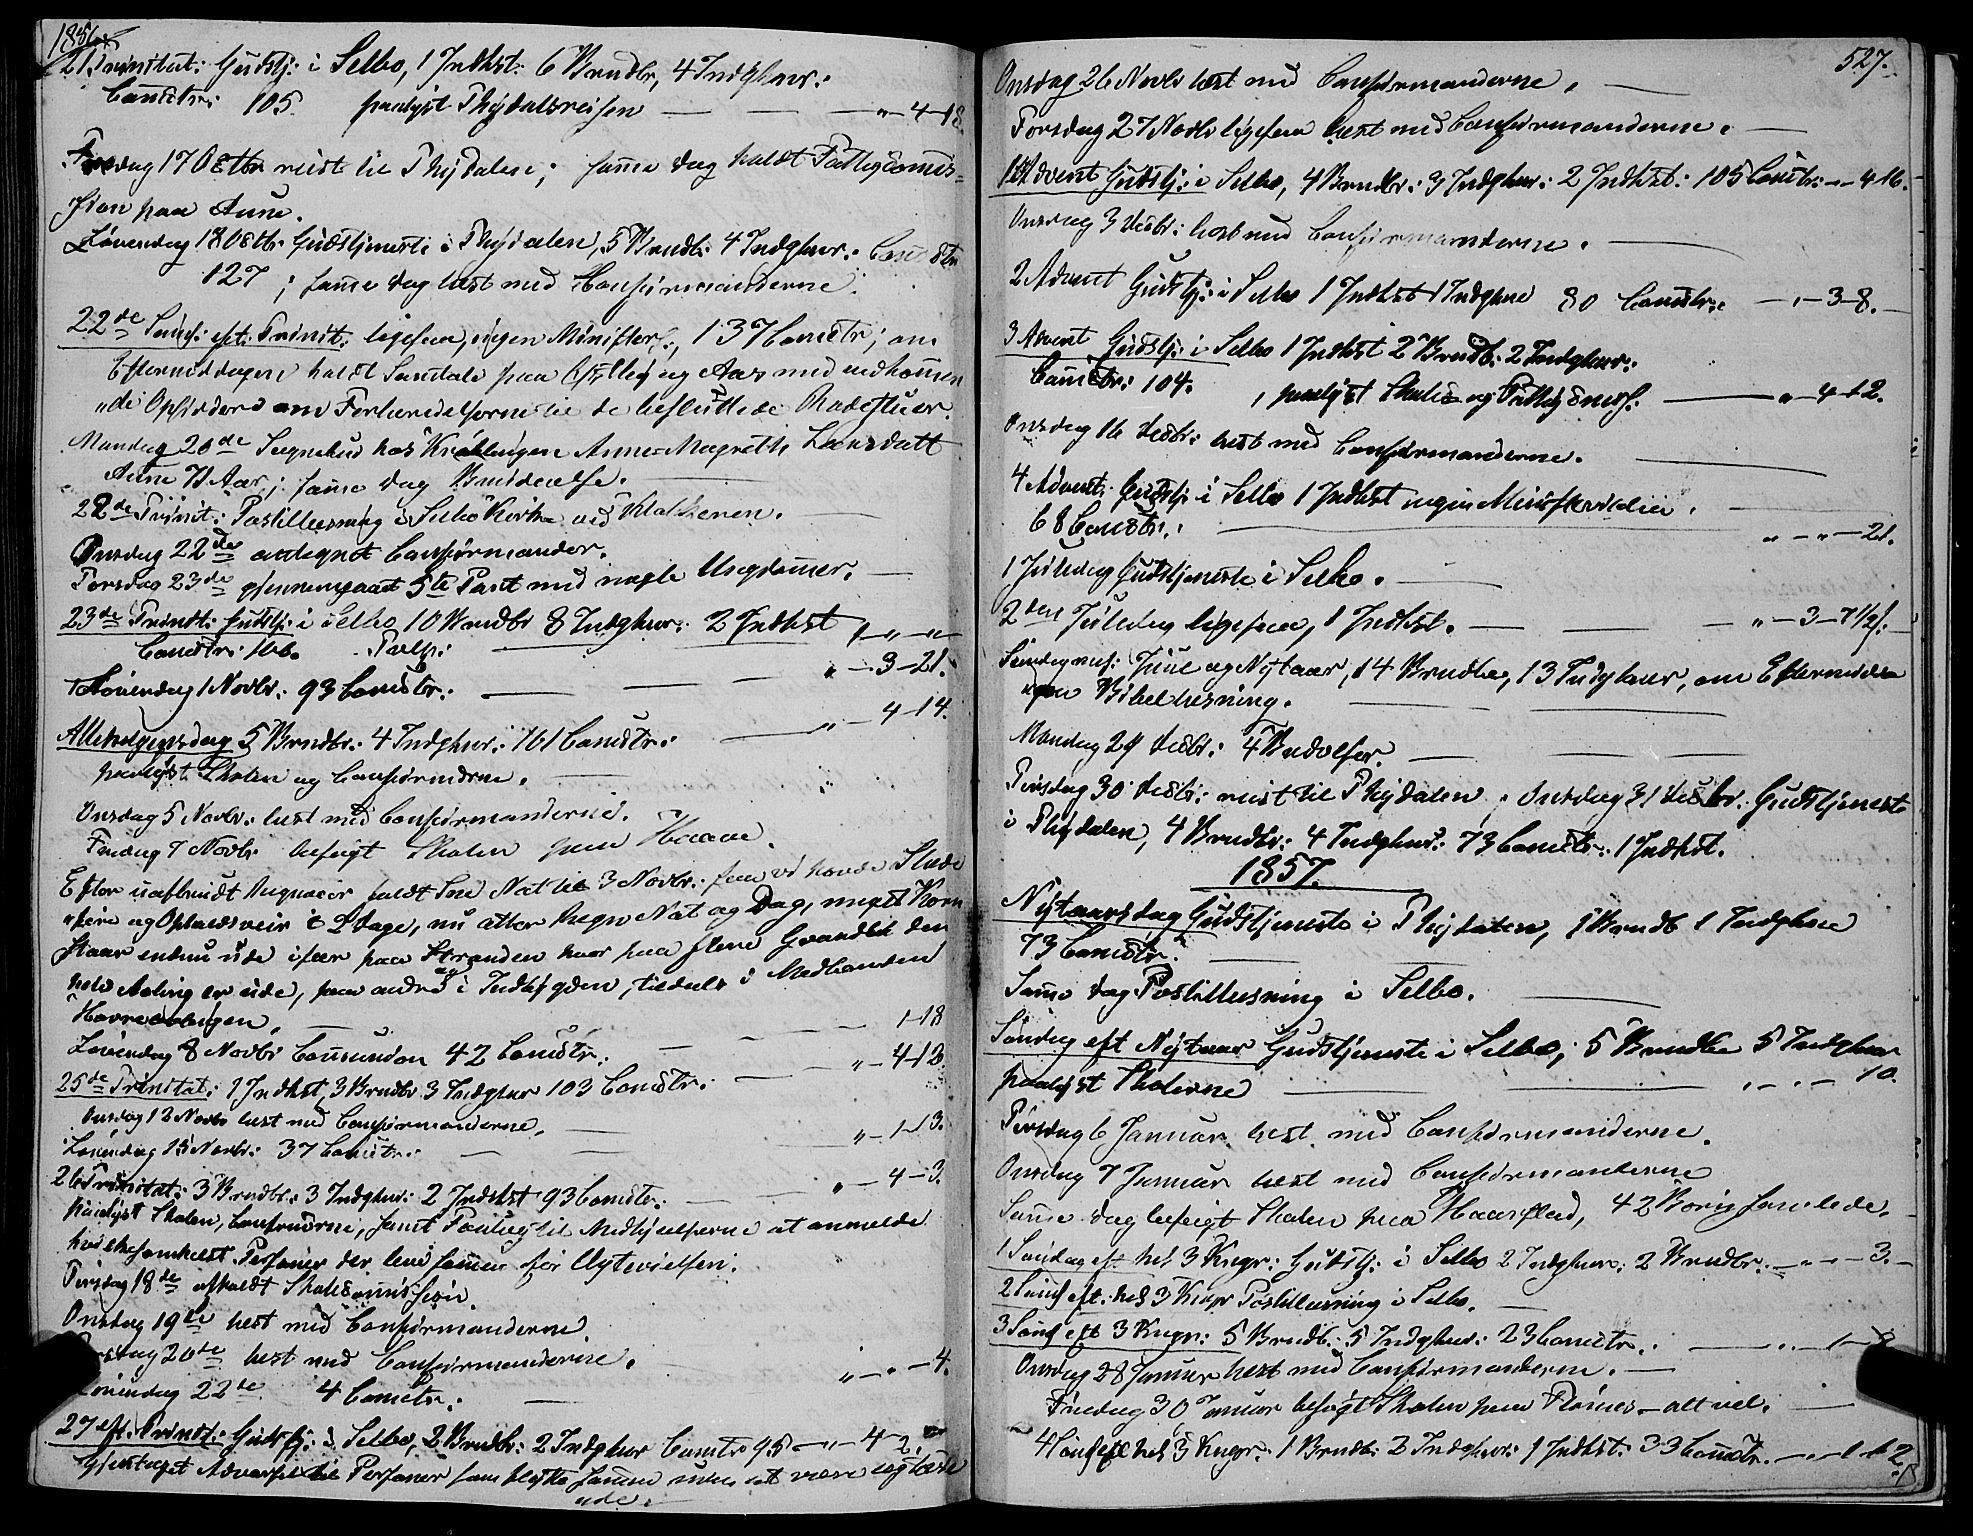 1856.
21 Trinitat: Gudstj: i Selbo, 1 Indhst: 6 Brudbr, 4 Indghver:
Comctr: 105. paalyst Thydalsreisen — — — „-4-18.
Fredag 17 Octbr reist til Thydalen; samme Dag holdt Fattigcommis-
sion paa Aune.
Løverdag 18 Octbr: Gudstjeneste i Thydalen, 5 Brudb: 4 Indghver:
127; samme Dag læst med Confirmanderne.
22de Sønd: eft: Trinit: ligesaa, ingen Minister:, 137 Comctr; om
Eftermiddagen holdt Samtale paa og Aas med vedkommen
„de Opsiddere om Forberedelserne til de besluttede Rodestuer.
Mandag 20de Sognebud hos Kræklingen Anne Magrethe Larsdatt
Aune 71 Aar; samme Dag Brudevielse.
22de Trinit: Postillæsning i Selbo Kirke ved Klokkeren. —
Onsdag 22de antegnet Confirmander.
Torsdag 23de gjennemgaaet 5te Part med nogle Ungdommer. —
23de Trinit: Gudstj: i Selbo 10 Brudbr 8 Indghver: 2 Indhst
Comctr: 166. — „-3-21.
Løverdag 1 Novbr: 93 Comctr: — — —
„-4-14.
Allehelgensdag 5 Brudbr: 4 Indghver: 161 Comctr: —
paalyst Skolen og Confirmderne. —
Onsdag 5 Novbr: læst med Confirmanderne.
Fredag 7 Novbr besøgt Skolen paa Haave.
Efter uafbrudt Regnveir faldt Snee Nat til 3 Novbr: saa vi havde Slæde
„føre og Opholdsveir i 2 Dage, nu atter Regn Nat og Dag, meget Korn
staar endnu ude især paa Stranden hvor paa flere Gaarde den
hele Avling er ude, paa andre i Indbygden, tildeels i Medbonden
Havreavlingen. — 1-18
Løverdag 8 Novbr Communion 42 Comctr: — — „-4-12
25de Trinitat: 1 Indhst, 3 Brudbr 3 Indghver 103 Comctr: —
Onsdag 12 Novbr læst med Confirmanderne. —
Løverdag 15 Novbr: 37 Comctr: — — „-1-13.
26 Trinitat: 3 Brudbr: 3 Indghver: 2 Indhst 93 Comctr: — „-4-3.
paalyst Skolen, Confirmderne, samt Paalæg til Medhjelperne at anmelde
hvilkesomhelst Personer der leve sammen før Ægtevielsen.
Tirsdag 18de afholdt Skolecommission.
Onsdag 19de læst med Confirmanderne.
Torsdag 20de læst med Confirmanderne.
Løverdag 22de 4 Comctr: — „-„-4.
27 eft: Trinit: Gudstj: i Selbo, 2 Brudbr: 2 Indghver Comctr 95 —„-4-2.
Gjentaget Advarsel til Personer som flytte sammen uden at være ægtevie
„de.
527.
Onsdag 26 Novbr læst med Confirmanderne. —
Torsdag 27 Novbr ligesaa læst med Confirmanderne. —
1 Advent Gudstj: i Selbo, 4 Brudbr: 3 Indghver: 2 Indhst: 105 Comctr: — 4-16.
Onsdag 3 Decbr: læst med Confirmanderne. —
2 Advent Gudstj: i Selbo 1 Indhst 1 Indghver 80 Comctr: —„-3-8.—
3 Advent Gudstj: i Selbo 1 Indhst 2 Brudb: 2 Indghver:
Comctr: 104. , paalyst Skole og — „-4-12.
Onsdag 16 Decbr: læst med Confirmanderne. —
4 Advent: Gudstj: i Selbo 1 Indhst ingen Ministerialia. —
68 Comctr: — „-„-21.
1 Juledag Gudstjeneste i Selbo. —
2den Juledag ligesaa, 1 Indhst. — — „-3-7 1/2 s:
Søndag mel: Juul og Nytaar, 14 Brudbr, 13 Indghver, om Eftermidda
„gen Bibellæsning. —
Mandag 29 Decbr: 4 Brudvielser. — — —
Tirsdag 30 Decbr: reist til Thydalen; Onsdag 31 Decbr: Gudstjeneste
i Thydalen, 4 Brudbr: 4 Indghver: 73 Comctr: 1 Indhst.
1857.
Nytaarsdag Gudstjeneste i Thydalen, 1 Brudb 1 Indghver
73 Comctr. —
Samme Dag Postillæsning i Selbo. —
Søndag eft Nytaar Gudstjeneste i Selbo; 5 Brudbr 5 Indghver
paalyst Skolerne — „-„-10.
Tirsdag 6 Januar læst med Confirmanderne.
Onsdag 7 Januar læst med Confirmanderne
Samme Dag besøgt Skolen paa Haarstad, 42 Børn samlede. —
1 Søndag eft hel 3 Kngr: Gudstj: i Selbo 2 Indghver: 2 Brudbr. —„-„-3.—
2 Sønd eft: hel 3 Kngr Postillæsning i Selbo. —
3 Sønd eft 3 Kngr: 5 Brudb: 5 Indghver: 23 Comctr. —
Onsdag 28 Januar læst med Confirmanderne. —
Fredag 30 Januar besøgt Skolen paa Flønes — alt vel. —
4 Sønd eft hel 3 Kngr: 1 Brudb: 2 Indghver: 1 Indhst: 33 Comctr. —„-1-12.